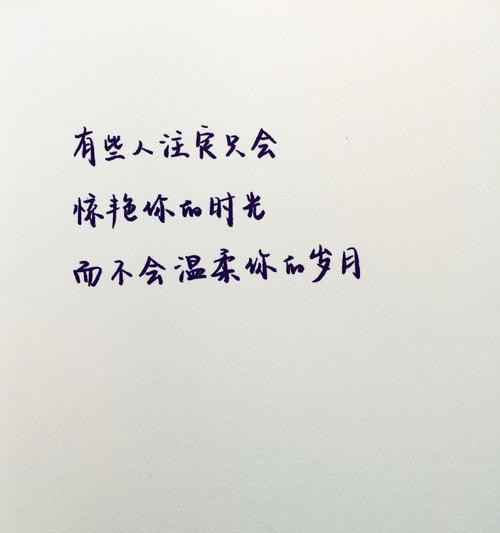 有些人注定只会
惊艳你的时光
而不会温柔你的岁月